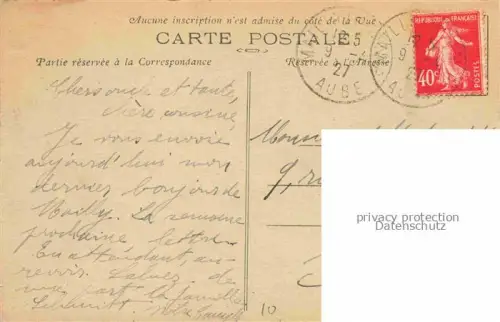 Aucune inscription n'est admise du côté de la Vue
CARTE POSTALE
Partie réservée à la Correspondance
Réservée à l'Adresse
MAILLY
9
27
AUBE
REPUBLIQUE FRANÇAISE
40c
POSTES
Chers oncle et tante,
chère cousine,
Je vous envoie
aujourd'hui mon
dernier bonjour de
Mailly. La semaine
prochaine lettre.
En attendant, au-
revoir. Saluez de
ma part la famille
Votre
9, ru
privacy protection
Datenschutz
10